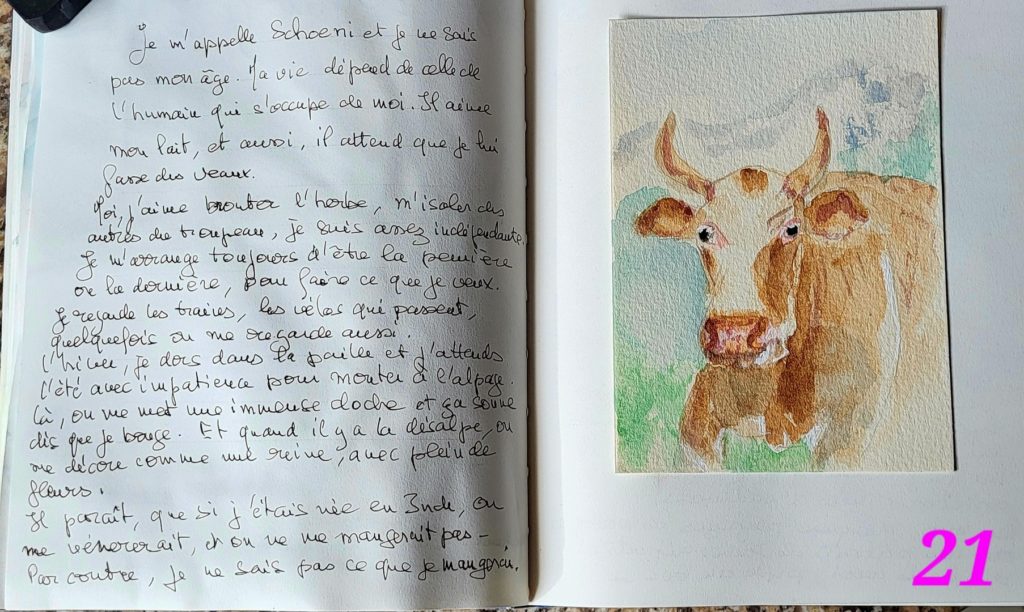 Je m'appelle Schoeni et je ne sais
pas mon âge. Ma vie dépend de celle de
l'humain qui s'occupe de moi. Il aime
mon lait, et aussi, il attend que je lui
fasse des veaux.
Moi, j'aime brouter l'herbe, m'isoler des
autres du troupeau, je suis assez indépendante.
Je m'arrange toujours d'être la première
ou la dernière, pour faire ce que je veux.
Je regarde les trains, les vélos qui passent,
quelquefois on me regarde aussi.
L'hiver, je dors dans la paille et j'attends
l'été avec impatience pour monter à l'alpage.
Là, on me met une immense cloche et ça sonne
dès que je bouge. Et quand il y a la désalpe, on
me décore comme une reine, avec plein de
fleurs.
Il paraît, que si j'étais née en Inde, on
me vénèrerait, et on ne me mangerait pas -
Par contre, je ne sais pas ce que je mangerai.
21